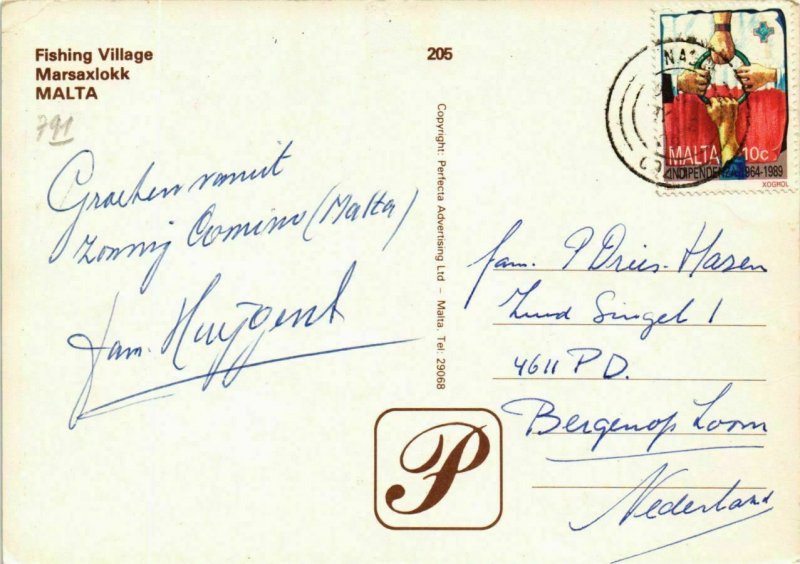 Fishing Village
Marsaxlokk
MALTA
791
205
Groeten vanuit
zonnig Comino (Malta)
fam. Huijgent
Copyright: Perfecta Advertising Ltd – Malta. Tel: 29068
P
MALTA 10c
INDIPENDENZA 1964-1989
XOGHOL
fam. P Dries-Hasen
Zuid Singel 1
4611 PD.
Bergenop Zoom
Nederland